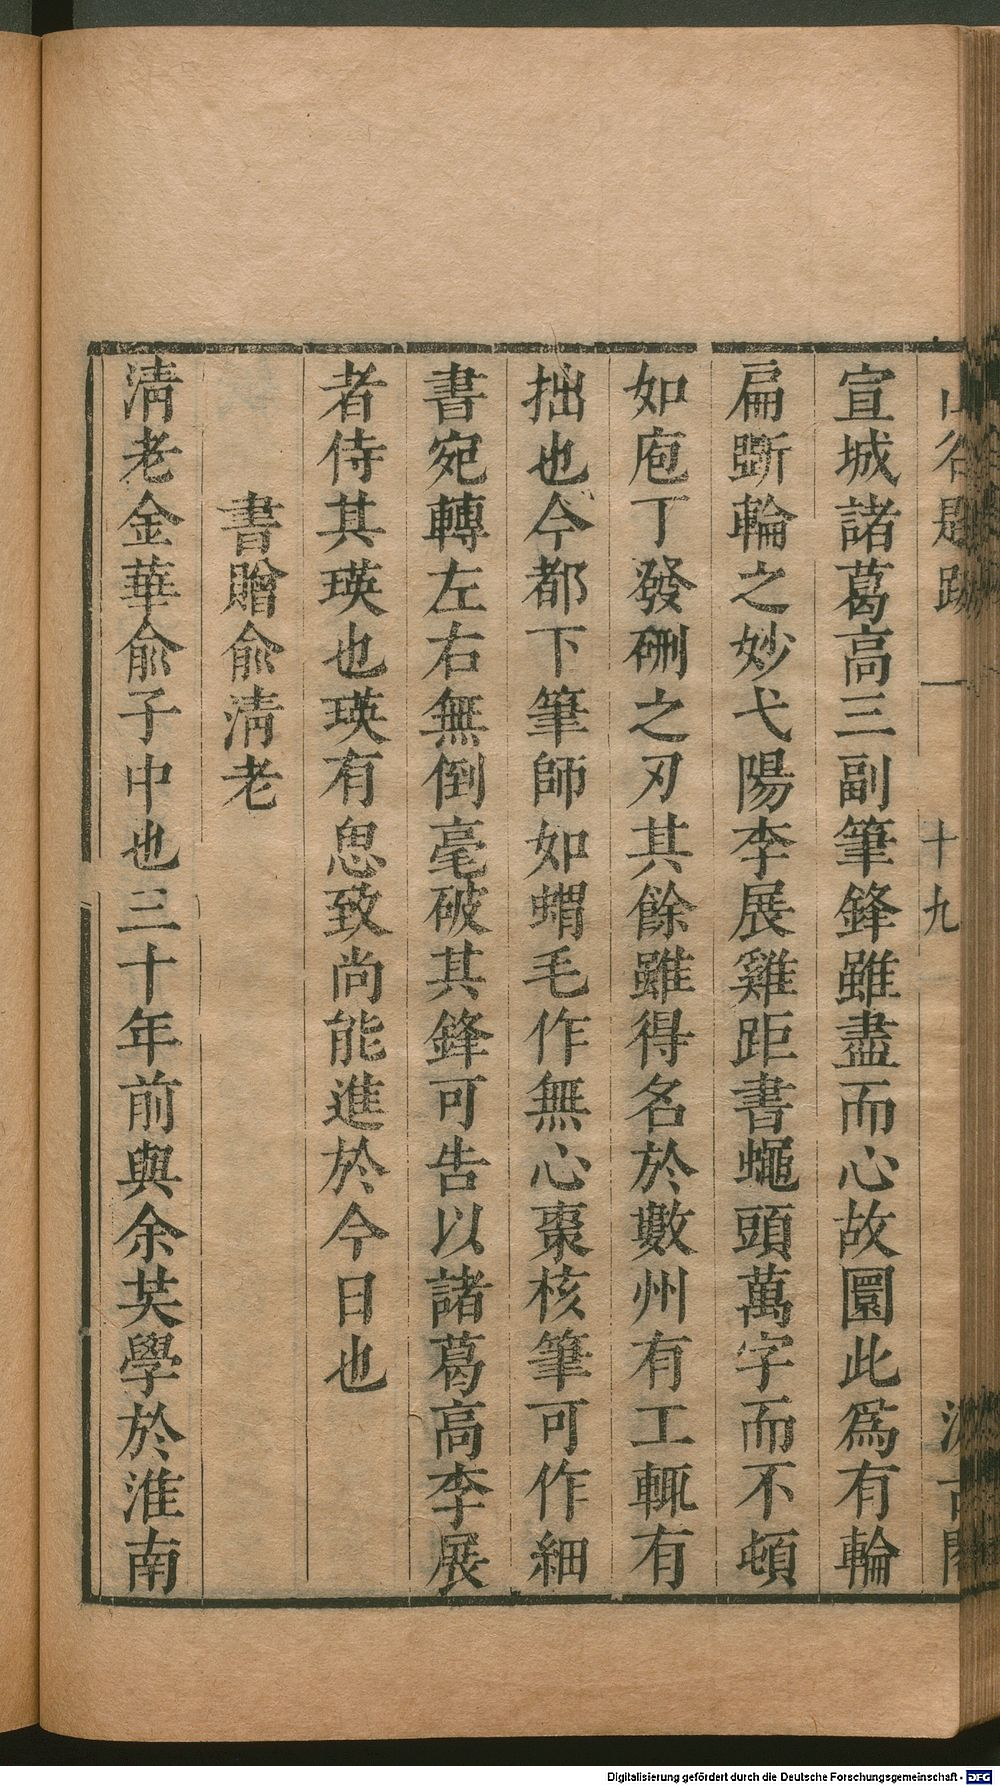 山谷題跋 一 十九 汲古閣
宣城諸葛高三副筆鋒雖盡而心故圜此爲有輪
扁斲輪之妙弋陽李展雞距書蠅頭萬字而不頓
如庖丁發硎之刃其餘雖得名於數州有工輒有
拙也今都下筆師如蝟毛作無心棗核筆可作細
書宛轉左右無倒毫破其鋒可告以諸葛高李展
者侍其瑛也瑛有思致尚能進於今日也
書贈俞清老
清老金華俞子中也三十年前與余共學於淮南
Digitalisierung gefördert durch die Deutsche Forschungsgemeinschaft - DFG